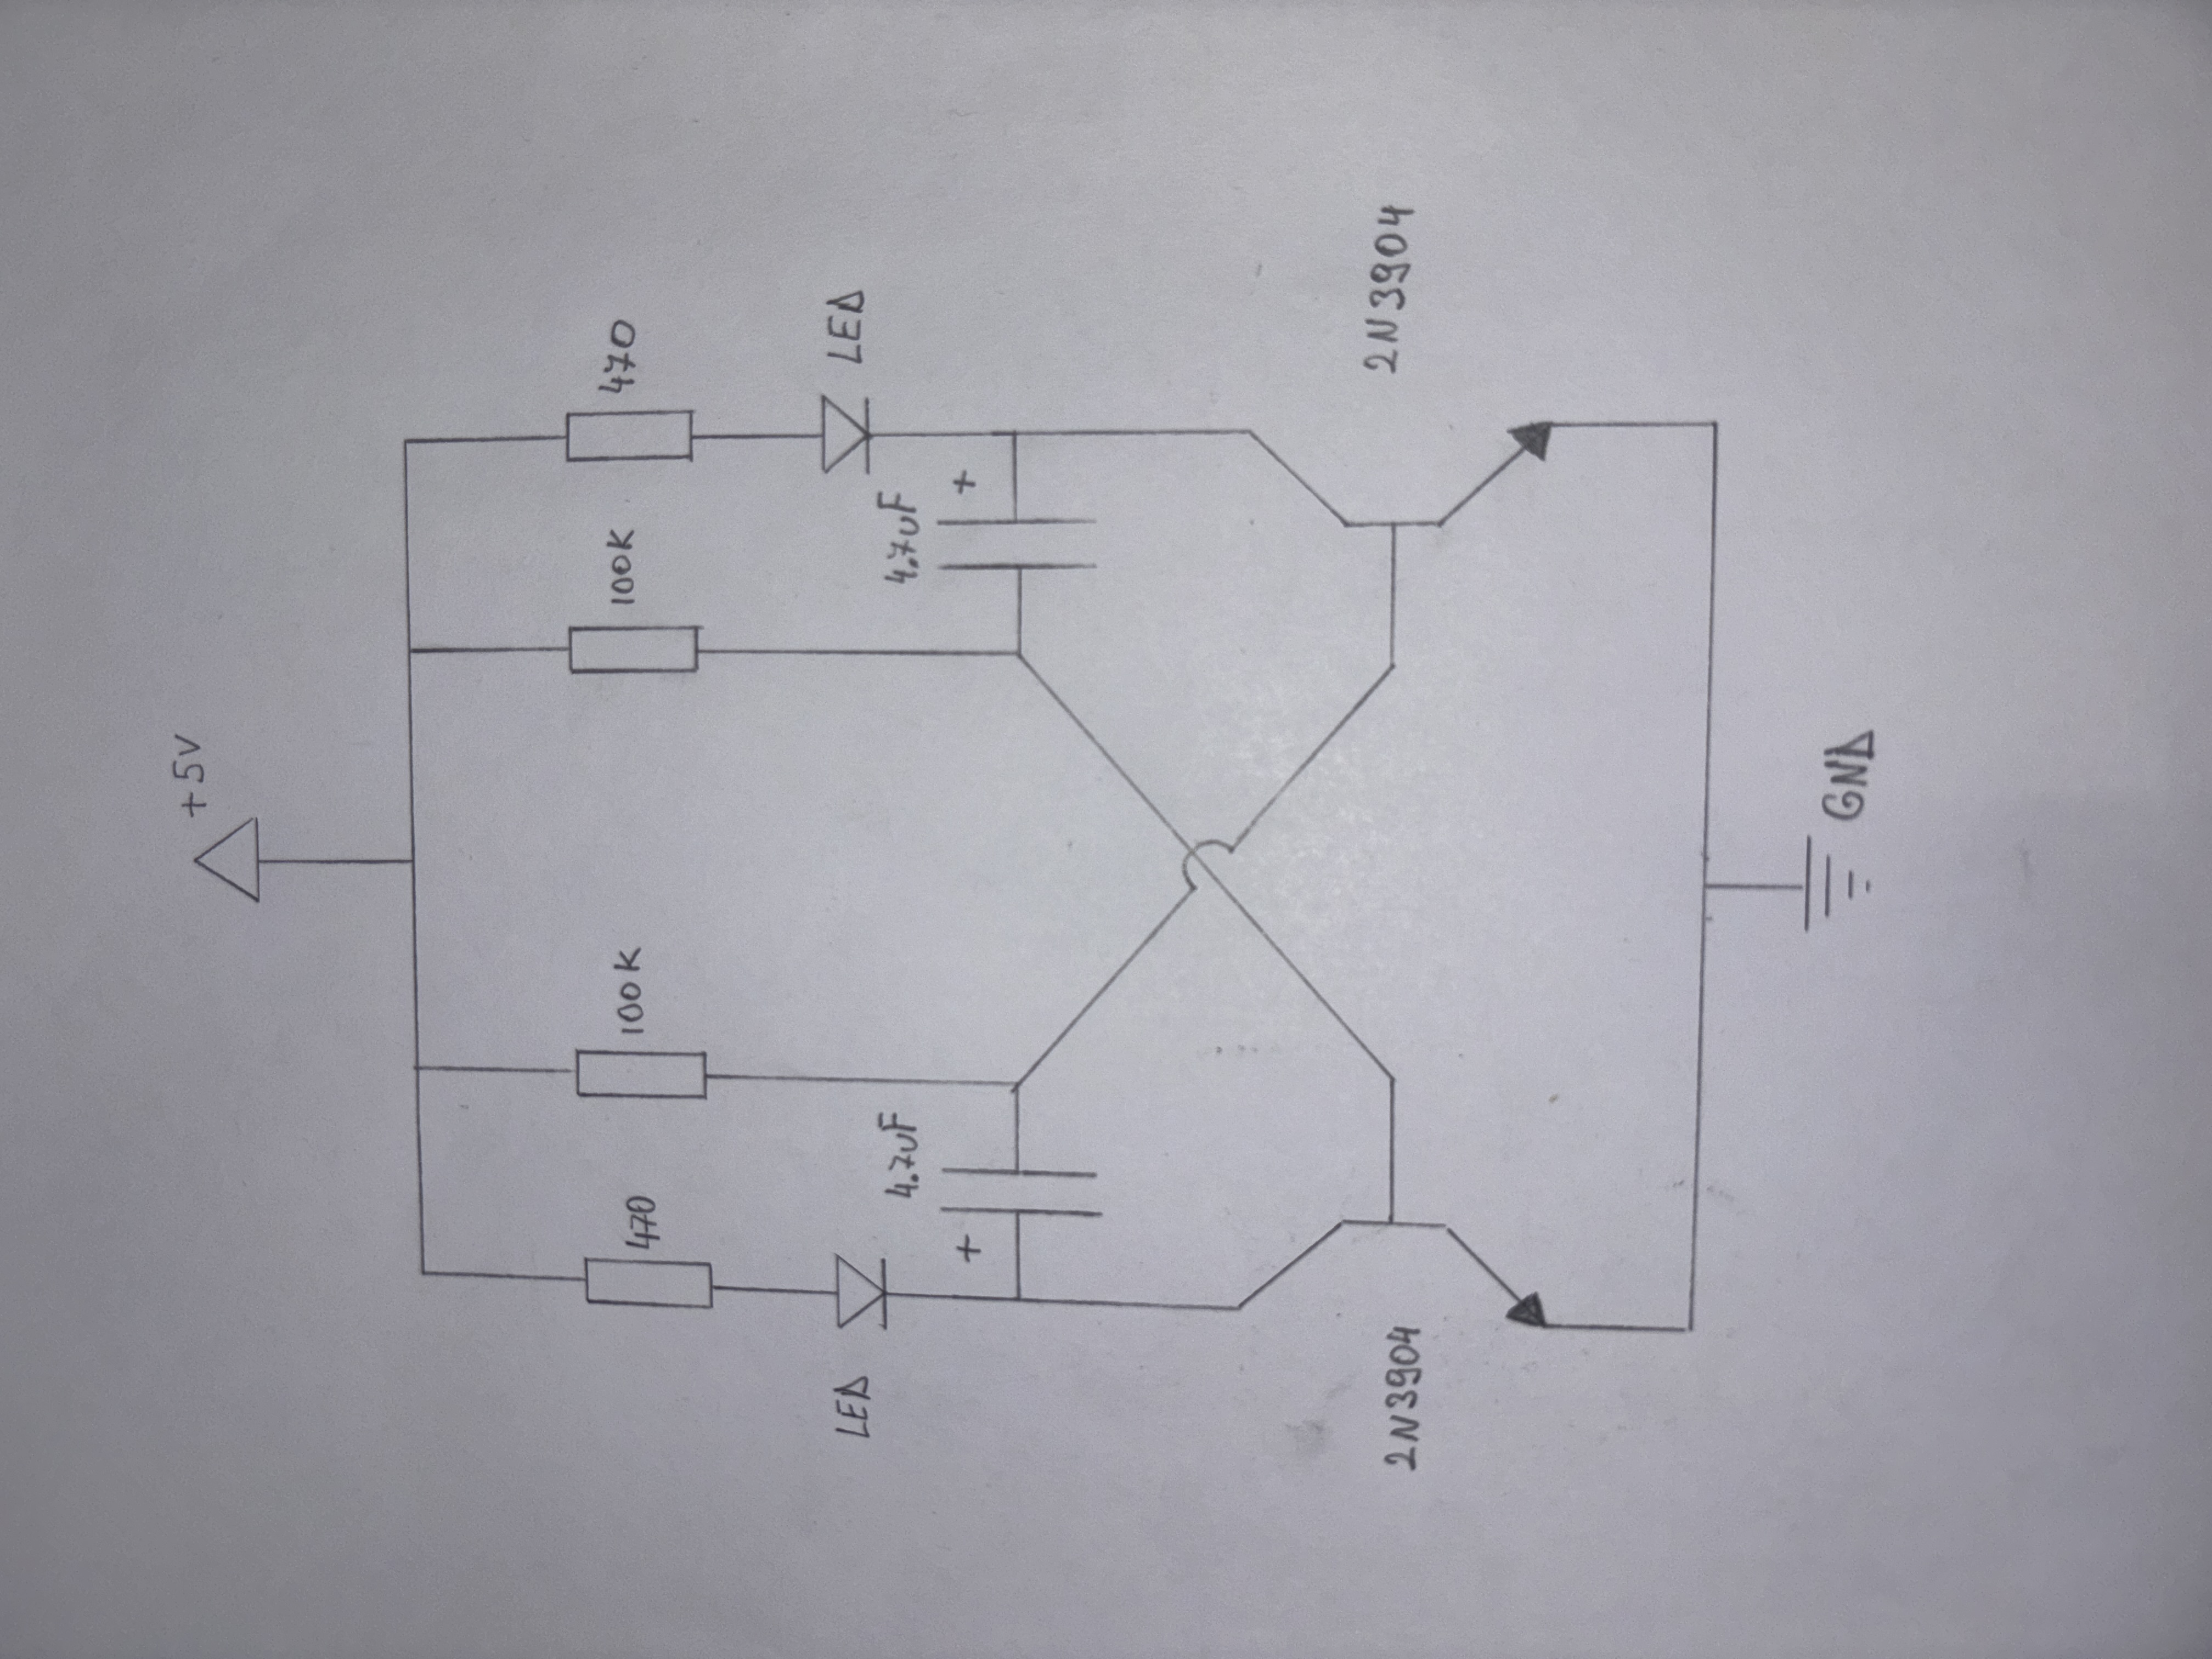 +5V
470
100K
100K
470
LED
4.7uF
4.7uF
LED
+
+
2N3904
2N3904
GND